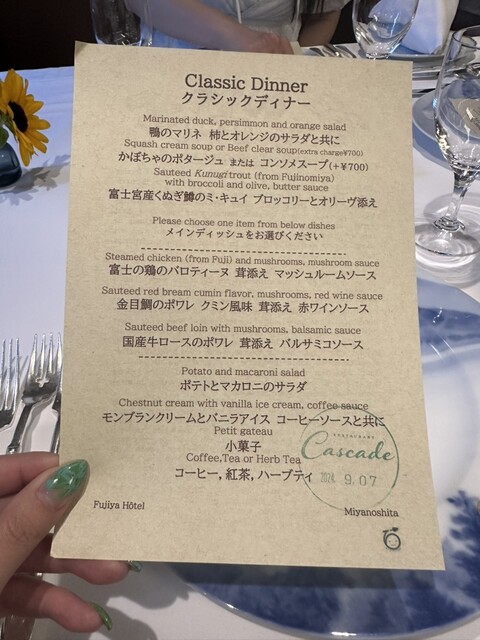 Classic Dinner
クラシックディナー
Marinated duck, persimmon and orange salad
鴨のマリネ 柿とオレンジのサラダと共に
Squash cream soup or Beef clear soup(extra charge¥700)
かぼちゃのポタージュ または コンソメスープ(+¥700)
Sauteed Kunugi trout (from Fujinomiya)
with broccoli and olive, butter sauce
富士宮産くぬぎ鱒のミ・キュイ ブロッコリーとオリーヴ添え
Please choose one item from below dishes
メインディッシュをお選びください
Steamed chicken (from Fuji) and mushrooms, mushroom sauce
富士の鶏のバロティーヌ 茸添え マッシュルームソース
Sauteed red bream cumin flavor, mushrooms, red wine sauce
金目鯛のポワレ クミン風味 茸添え 赤ワインソース
Sauteed beef loin with mushrooms, balsamic sauce
国産牛ロースのポワレ 茸添え バルサミコソース
Potato and macaroni salad
ポテトとマカロニのサラダ
Chestnut cream with vanilla ice cream, coffee sauce
モンブランクリームとバニラアイス コーヒーソースと共に
Petit gateau
小菓子
Coffee,Tea or Herb Tea
コーヒー, 紅茶, ハーブティ
RESTAURANT
Cascade
2024. 9.07
Fujiya Hôtel
Miyanoshita